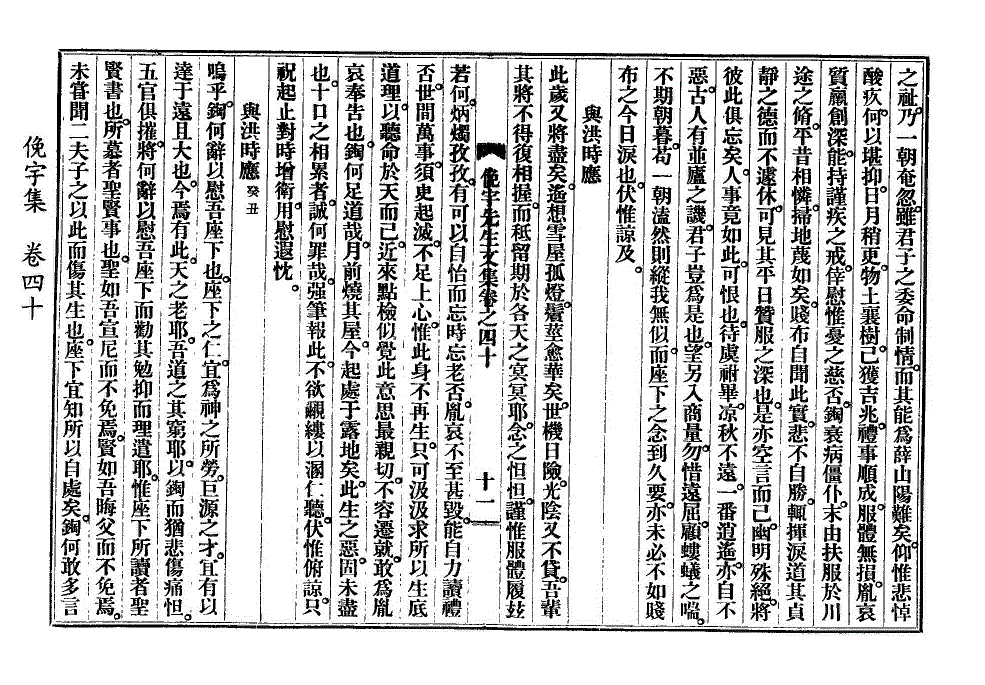 之祉乃一朝奄忽雖君子之委命制情而其能爲薛山陽難矣仰惟悲悼
酸疚何以堪抑日月稍更物土襄樹已獲吉兆禮事順成服體無損胤哀
質羸創深能持謹疾之戒倖慰惟憂之慈否鋾衰病僵仆末由扶服於川
途之脩平昔相憐掃地蔑如矣賤布自聞此實悲不自勝輒揮淚道其貞
靜之德而不遽休可見其平日贊服之深也是亦空言而已幽明殊絕將
彼此俱忘矣人事竟如此可恨也待虞祔畢凉秋不遠一番逍遙亦自不
惡古人有並廬之譏君子豈爲是也望另入商量勿惜遠屈顧螻蟻之喘
不期朝暮苟一朝溘然則縱我無似而座下之念到久要亦未必不如賤
布之今日淚也伏惟諒及
與洪時應
此歲又將盡矣遙想雪屋孤燈鬢莖愈華矣世機日險光陰又不貸吾輩
其將不得復相握而秪留期於各天之冥冥耶念之怛怛謹惟服體履玆
俛宇先生文集卷之四十 十一
若何炳燭孜孜有可以自怡而忘時忘老否胤哀不至甚毀能自力讀禮
否世間萬事須臾起滅不足上心惟此身不再生只可汲汲求所以生底
道理以聽命於天而已近來點檢似覺此意思最親切不容遷就敢爲胤
哀奉告也鋾何足道哉月前燒其屋今起處于露地矣此生之惡固未盡
也十口之相累者誠何罪哉强筆報此不欲覼縷以溷仁聽伏惟俯諒只
祝起止對時增衛用慰遐忱
與洪時應 癸丑
嗚乎鋾何辭以慰吾座下也座下之仁宜爲神之所勞巨源之才宜有以
達于遠且大也今焉有此天之老耶吾道之其窮耶以鋾而猶悲傷痛怛
五官俱摧將何辭以慰吾座下而勸其勉抑而理遣耶惟座下所讀者聖
賢書也所慕者聖賢事也聖如吾宣尼而不免焉賢如吾晦父而不免焉
未嘗聞二夫子之以此而傷其生也座下宜知所以自處矣鋾何敢多言
俛宇集 卷四十